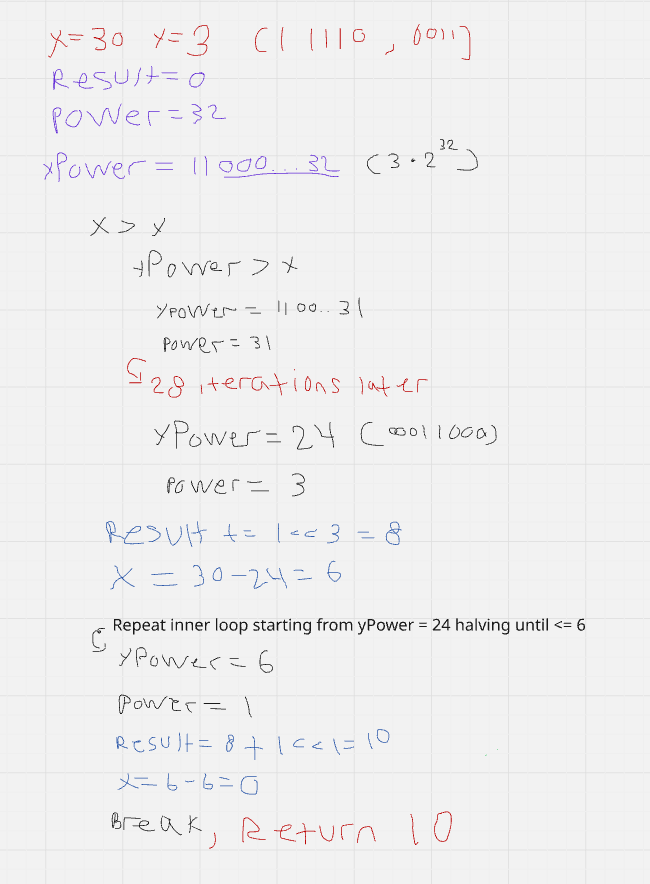 x=30 y=3 (11110, 0011]
Result=0
power=32
yPower = 11000...32 (3·2^32)
x > y
yPower > x
yPower = 1100..31
power = 31
28 iterations later
yPower = 24 (00011000)
power = 3
Result += 1<<3 = 8
x = 30-24=6
Repeat inner loop starting from yPower = 24 halving until <= 6
yPower = 6
power = 1
Result= 8+1<<1=10
x=6-6=0
Break, Return 10